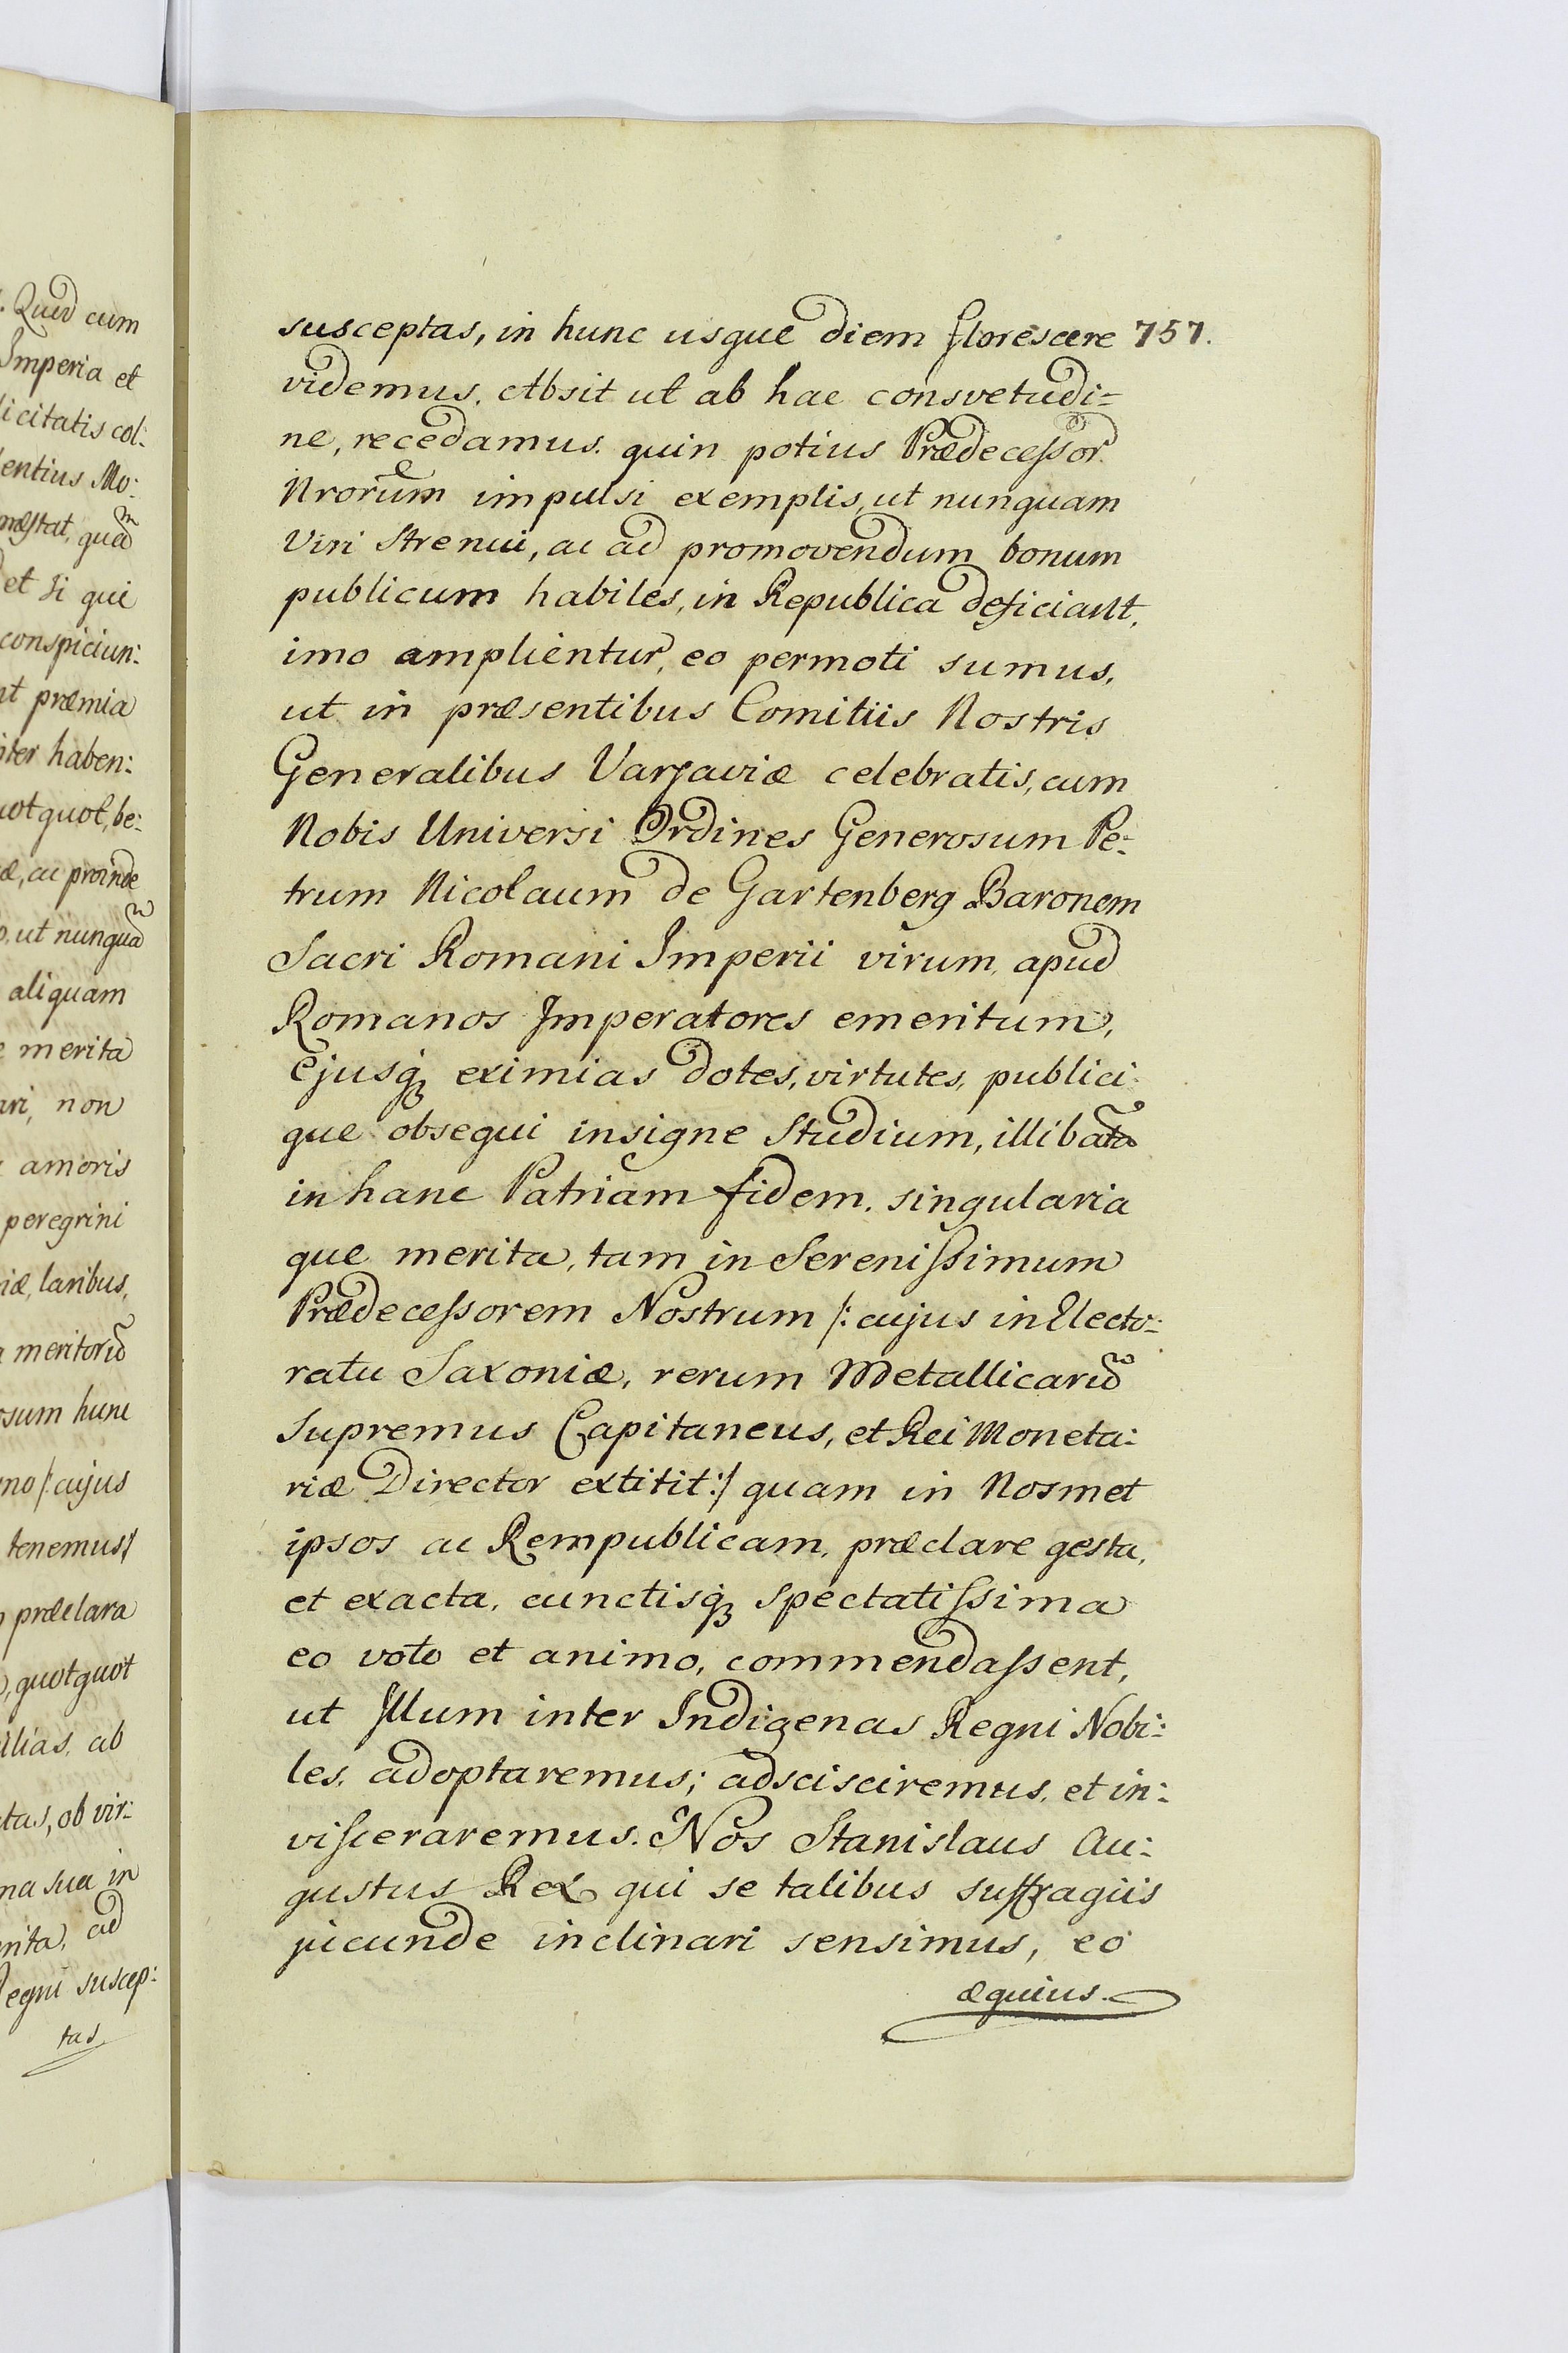 . Quid cum
Imperia et
licitatis col:
entius Mo:
præstat, quam
et si qui
conspiciun:
nt præmia
iter haben:
uotquot, be:
æ, ac proinde
o, ut nunquam
aliquam
e merita
ari, non
amoris
peregrini
iæ, laribus,
a meritorũ
osum hunc
no /: cujus
tenemus /
præclara
, quotquot
ilias, ab
tas, ob vir:
ma sua in
erita, ad
Regni suscep:
tas
757.
susceptas, in hunc usque diem florescere
videmus. Absit ut ab hac consvetudi=
ne, recedamus. quin potius Prædecessor.
Nrorum impulsi exemplis, ut nunquam
Viri Strenui, ac ad promovendum bonum
publicum habiles, in Republica deficiant,
imo amplientur, eo permoti sumus,
ut in præsentibus Comitiis Nostris
Generalibus Varsaviæ celebratis, cum
Nobis Universi Ordines Generosum Pe:
trum Nicolaum de Gartenberg Baronem
Sacri Romani Imperii virum, apud
Romanos Imperatores emeritum,
Ejusq; eximias dotes, virtutes, publici
que obsequi insigne Studium, illibatã
in hanc Patriam fidem, singularia
que merita, tam in Serenissimum
Prædecessorem Nostrum /: cujus in Electo:
ratu Saxoniæ, rerum Metallicarũ
Supremus Capitaneus, et Rei Moneta:
riæ Director extitit :/ quam in Nosmet
ipsos ac Rempublicam, præclare gesta,
et exacta, cunctisq; spectatissima
eo voto et animo, commendassent,
ut Illum inter Indigenas Regni Nobi:
les, adoptaremus; adscisciremus, et in:
visceraremus. Nos Stanislaus Au:
gustus Rex qui se talibus suffragiis
jucunde inclinari sensimus, eo
æquius